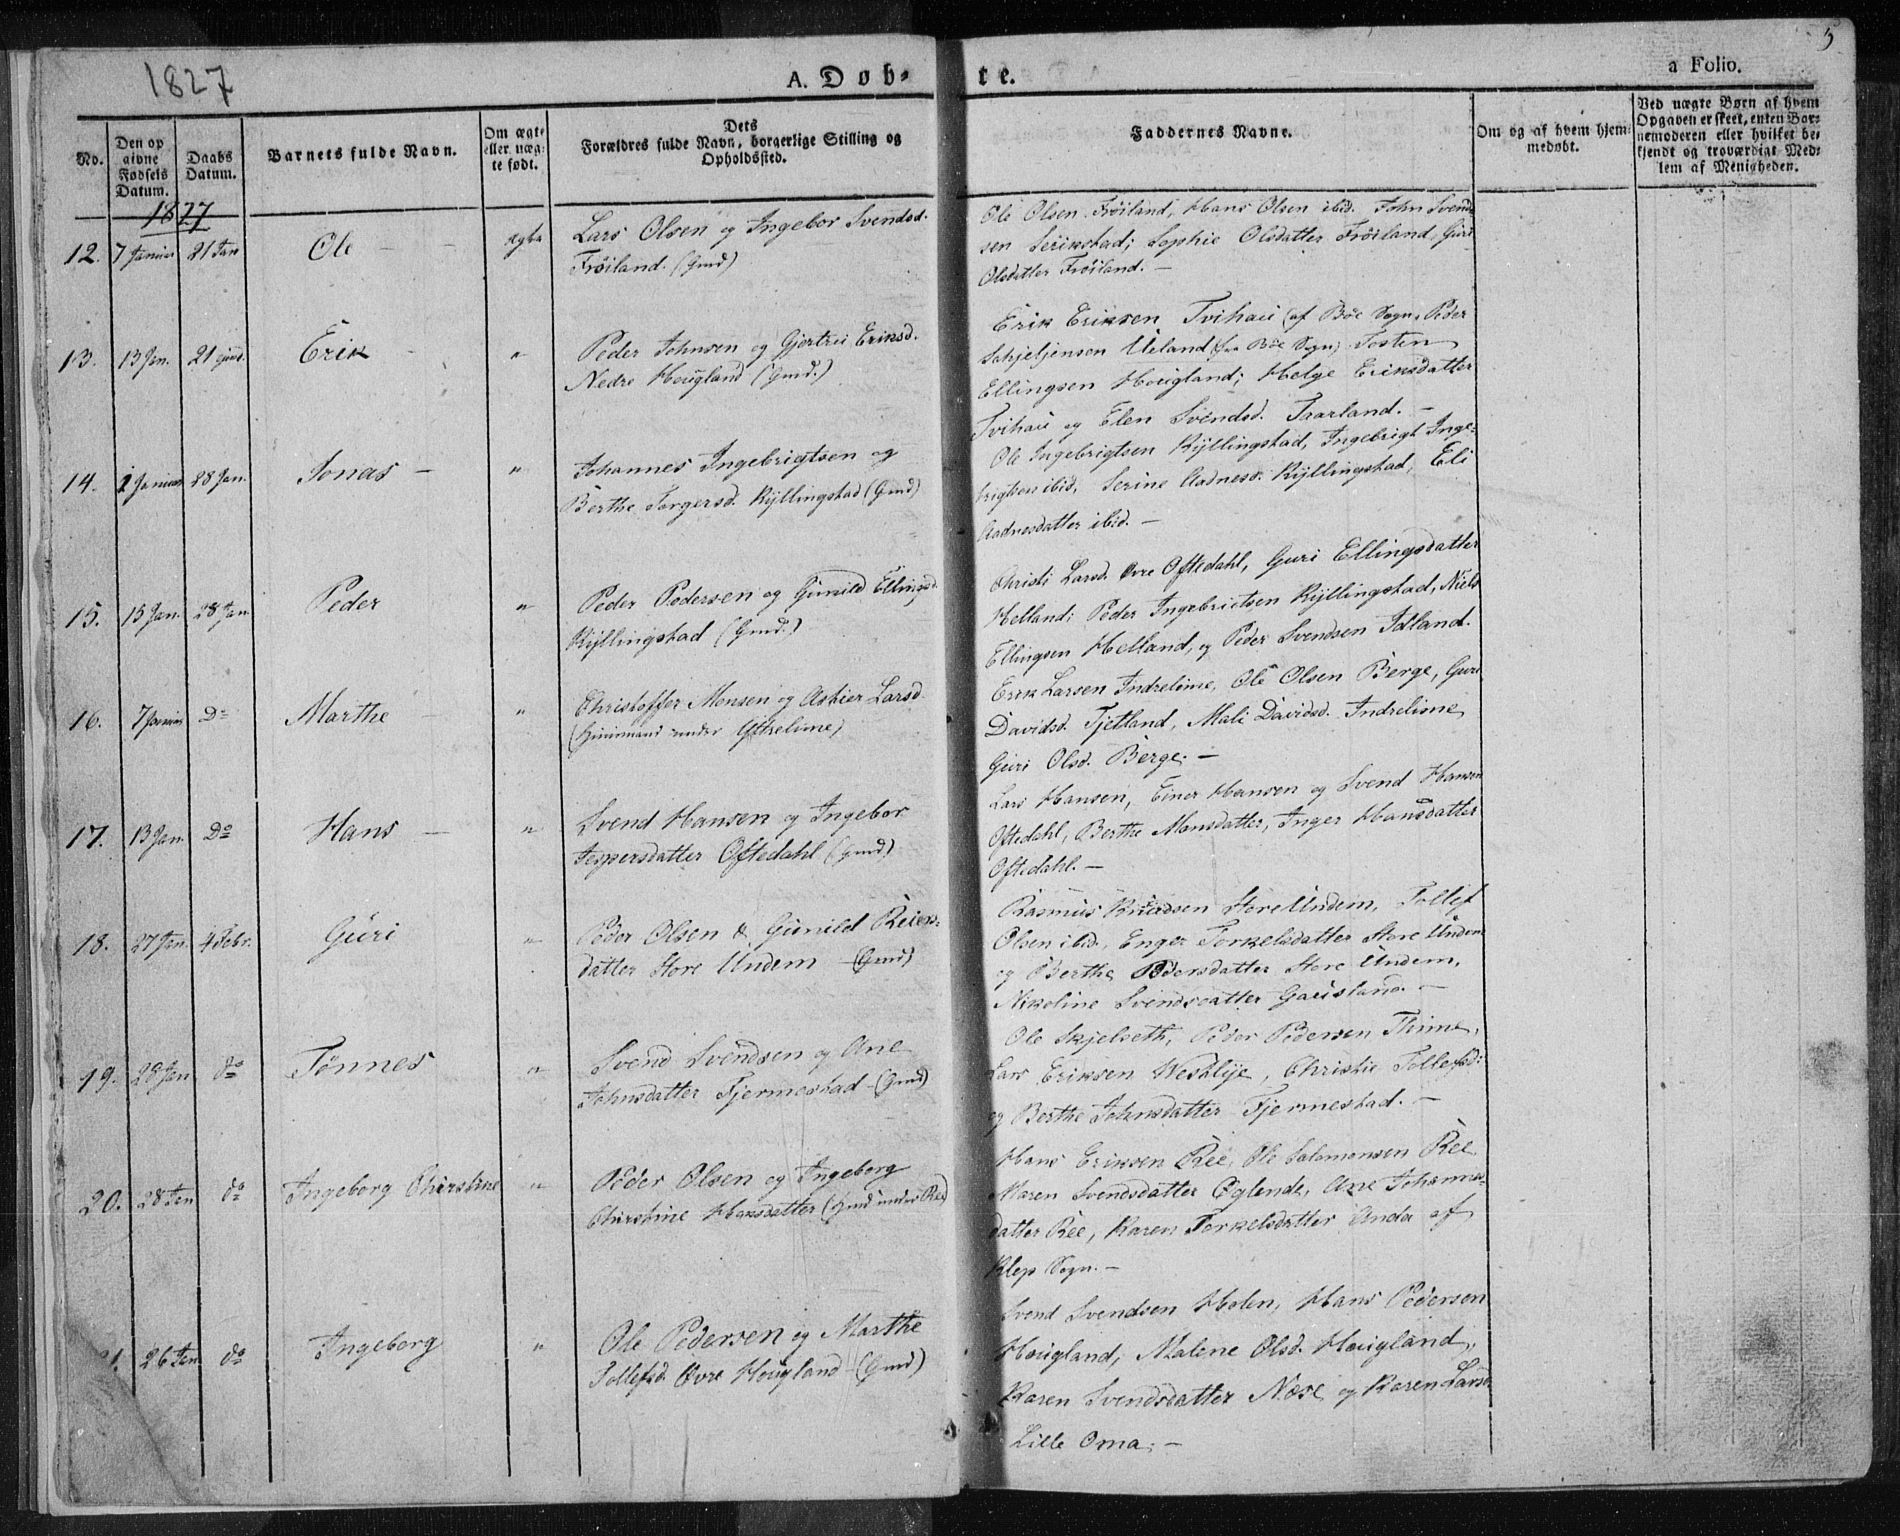 1827
A. Døb-
te.
a Folio.
5
No.
Den op
givne
Fødsels
Datum.
Daabs
Datum.
Barnets fulde Navn.
Om ægte
eller uæg-
te født.
Dets
Forældres fulde Navn, borgerlige Stilling og
Opholdssted.
Faddernes Navne.
Om og af hvem hjem-
medøbt.
Ved uægte Børn af hvem
Opgaven er skeet, enten Bar-
nemoderen eller hvilket be-
kjendt og troværdigt Med-
lem af Menigheden.
1827
12. 7 Januar 21 Jan Ole - - ægte
Lars Olsen og Ingebor Svendsd.
Frøiland. (Gmd)
Ole Olsen Frøiland, Hans Olsen ibid. John Svend-
sen Serikstad; Sophie Olsdatter Frøiland, Guri
Olsdatter Frøiland. —
13. 13 Jan. 21 Erik - "
Peder Johnsen og Gjertrei Eriksd.
Nedre Hougland (Gmd.)
Erik Eriksen Tvihau (af Bøe Sogn, Peder
Schjeljensen Ueland (fra Bøe Sogn) Tosten
Ellingsen Hougland; Helge Eriksdatter
Tvihau og Elen Svendsd. Taarland. —
14. 2 Januar 28 Jan. Jonas — "
Johannes Ingebrigtsen og
Berthe Torgersd. Kyllingstad (Gmd)
Ole Ingebrigtsen Kyllingstad, Ingebrigt Inge-
brigtsen ibid, Serine Aadnesd. Kyllingstad, Eli
Aadnesdatter ibid. —
15. 15 Jan. 28 Jan. Peder "
Peder Pedersen og Gunild Ellingsd.
Kyllingstad (Gmd.)
Christi Larsd. Øvre Oftedahl, Guri Ellingsdatter
Helland; Peder Ingebrictsen Kyllingstad, Niels
Ellingsen Helland, og Peder Svendsen Idland.
16. 7 Januar Do Marthe - "
Christoffer Monsen og Askier Larsd
(Huusmand under )
Erik Larsen Indrelime, Ole Olsen Berge, Guri
Davidsd. Tjetland, Mali Davidsd. Indrelime
Guri Olsd. Berge. —
17. 13 Jan. Do Hans — "
Svend Hansen og Ingebor
Jespersdatter Oftedahl (Gmd)
Lars Hansen, Einer Hansen og Svend Hansen
Oftedahl, Berthe Monsdatter, Inger Hansdatter
Oftedahl. —
18. 27 Jan. 4 Febr. Guri "
Peder Olsen & Gunild Reiers-
datter Store Undem (Gmd)
Rasmus Knudsen Store Undem, Tollef
Olsen ibid., Enger Torkelsdatter Store Undem
og Berthe Pedersdatter Store Undem,
Nikoline Svendsdatter Gausland. —
19. 28 Jan do Tønnes "
Svend Svendsen og Ane
Johnsdatter Fjermestad (Gmd)
Ole Skjelseth, Peder Pedersen Thime,
Lars Eriksen Westlye, Christie Tollefsd:
og Berthe Johnsdatter Fjermestad. —
20. 28 Jan do Ingeborg Chirstine "
Peder Olsen og Ingeborg
Chirstine Hansdatter (Hmd under Ree)
Hans Eriksen Ree, Ole Salomonsen Ree
Maren Svendsdatter Øglende, Ane Johannes-
datter Ree, Karen Torkelsdatter Anda af
Klep Sogn. —
21. 26 Jan do Ingeborg "
Ole Pedersen og Marthe
Tollefsd. Øvre Hougland (Gmd)
Svend Svendsen Holen, Hans Pedersen
Hougland, Malene Olsd. Hougland,
Karen Svendsdatter Næse og Karen Larsd.
Lille Oma. —